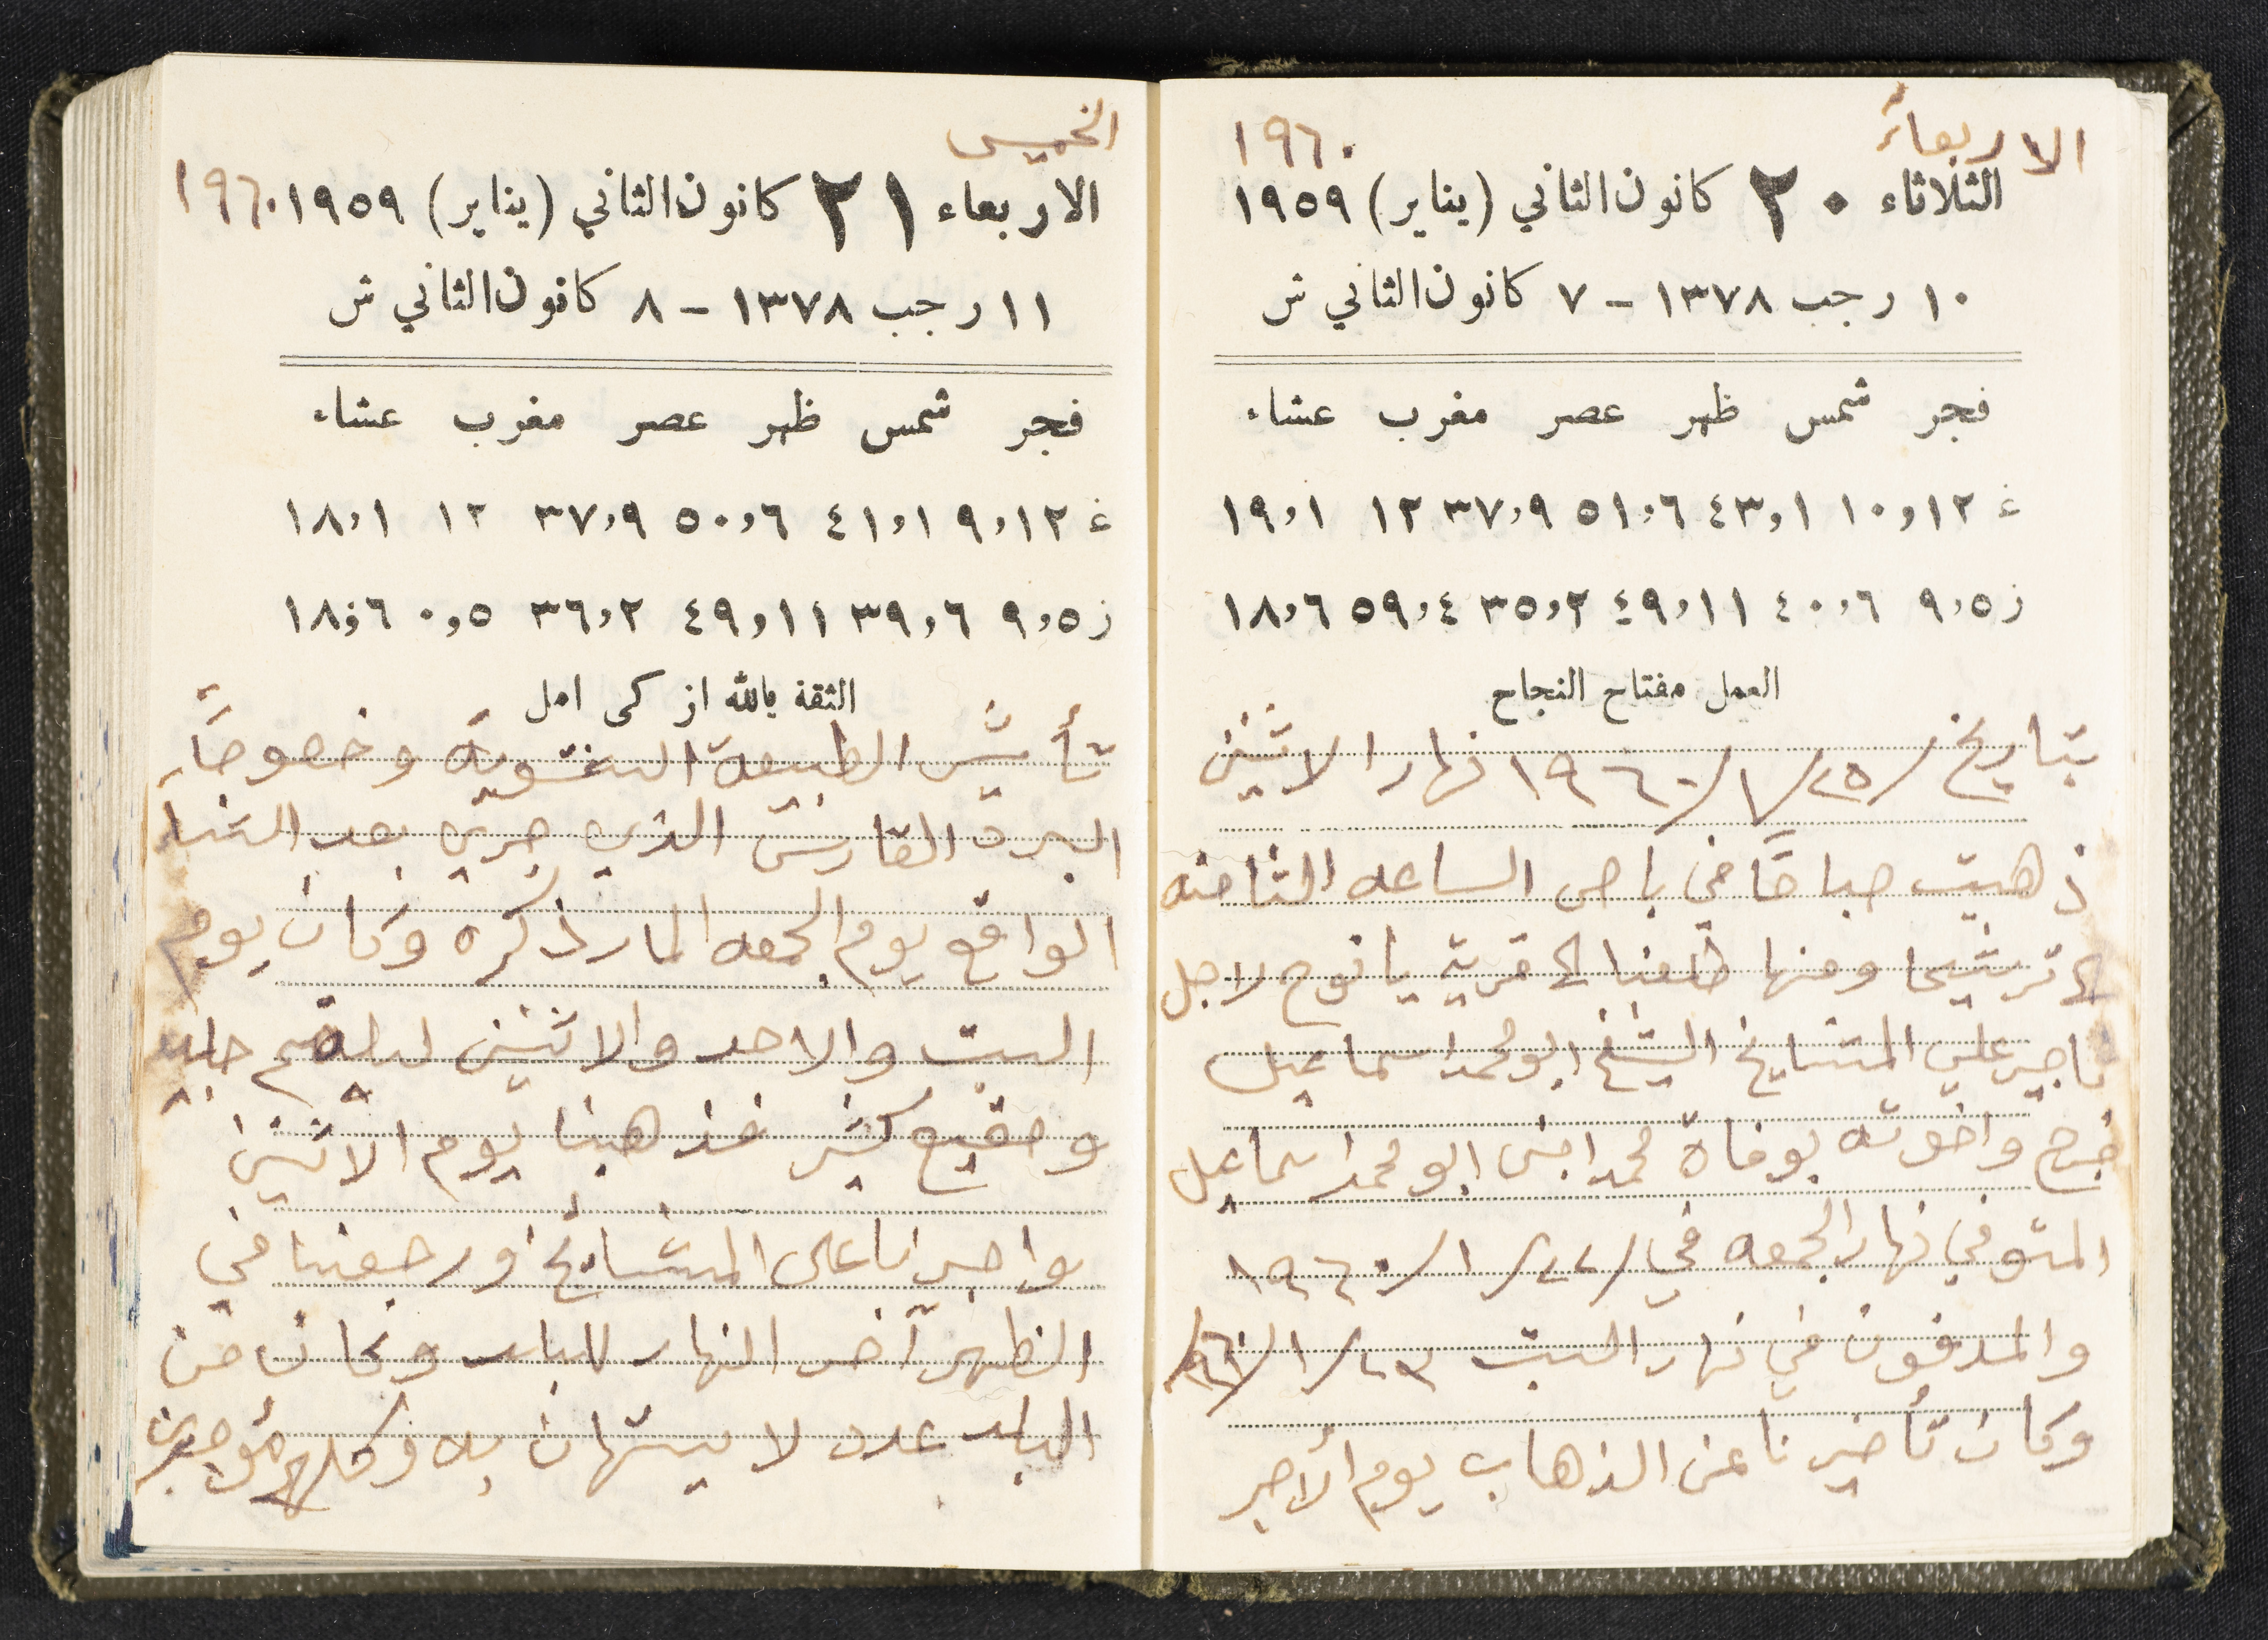 الاربعاء
١٩٦٠
الثلاثاء ٢٠ كانون الثاني (يناير) ١٩٥٩
١٠ رجب ١٣٧٨ - ٧ كانون الثاني ش
فجر شمس ظهر عصر مغرب عشاء
غ ١٠,١٢ ٤٣,١ ٥١,٦ ٣٧,٩ ١٢ ١٩,١
ز ٩,٥ ٤٠,٦ ٤٩,١١ ٣٥,٢ ٥٩,٤ ١٨,٦
العمل مفتاح النجاح
بتاريخ /٢٥/١/١٩٦٠ نهار الاثنين
ذهبت صباحًا في باص الساعه الثامنه
الى ترشيحا ومنها طلعنا الى قرية يانوح لاجل
نأجر على المشايخ الشيخ ابو محمد اسماعيل
فرج واخوته بوفاة محمد ابن ابو محمد اسماعيل
المتوفي نهار الجمعه في /٢٢/١/١٩٦٠
والمدفون في نهار السبت ٢٣/١/١٩٦٠
وكان تأخيرنا عن الذهاب يوم الأجر
الخميس
الاربعاء ٢١ كانون الثاني (يناير) ١٩٥٩ ١٩٦٠
١١ رجب ١٣٧٨ - ٨ كانون الثاني ش
فجر شمس ظهر عصر مغرب عشاء
غ ٩,١٢ ٤١,١ ٥٠,٦ ٣٧,٩ ١٢ ١٨,١
ز ٩,٥ ٣٩,٦ ٤٩,١١ ٣٦,٢ ٠,٥ ١٨,٦
الثقة بالله ازكى امل
الطبيعة وخصوصًا
البرد القارس الذي جرى بعد الشتاء
الواقع يوم الجمعه المار ذكره وكان يوم
السبت والاحد والاثنين
وصقيع كثير فذهبنا يوم الاثنين
واجرنا على المشايخ ورجعنا في
الظهر آخر النهار للبلد وكان من
البلد عدد لا يستهان به وكلهم مؤجرين